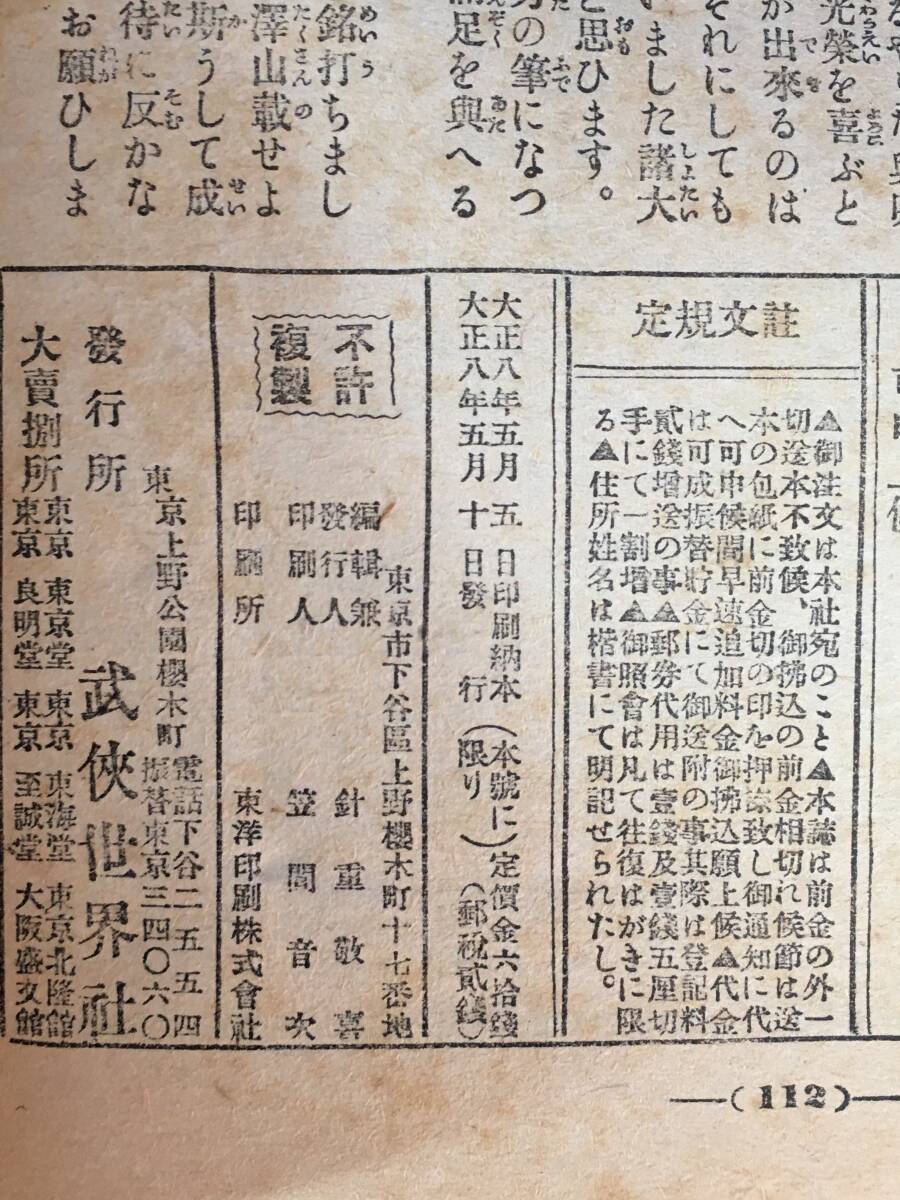 光榮を喜ぶと
が出來るのは
それにしても
いました諸大
と思ひます。
の筆になつ
足を與へる
銘打ちまし
澤山載せよ
斯うして成
待に反かな
お願ひしま
註文規定
▲御注文は本社宛のこと▲本誌は前金の外一
切送本不致候、御拂込の前金相切れ候節は送
本の包紙に前金切の印を押捺致し御通知に代
へ可申候間早速追加料金御拂込願上候▲代金
は可成振替貯金にて御送附の事其際は登記料
貳錢增送の事▲郵券代用は壹錢及壹錢五厘切
手にて一割增▲御照會は凡て往復はがきに限
る▲住所姓名は楷書にて明記せられたし。
大正八年五月五日印刷納本
大正八年五月十日發行
(本號に
限り)
定價金六拾錢
(郵稅貳錢)
不許
複製
東京市下谷區上野櫻木町十七番地
編輯兼
發行人 針重敬喜
印刷人 笠間音次
印刷所 東洋印刷株式會社
發行所
東京上野公園櫻木町
電話下谷二五五四
振替東京三四〇六〇
武俠世界社
大賣捌所
東京 東京堂 東京 東海堂 東京北隆館
東京 良明堂 東京 至誠堂 大阪盛文館
(112)